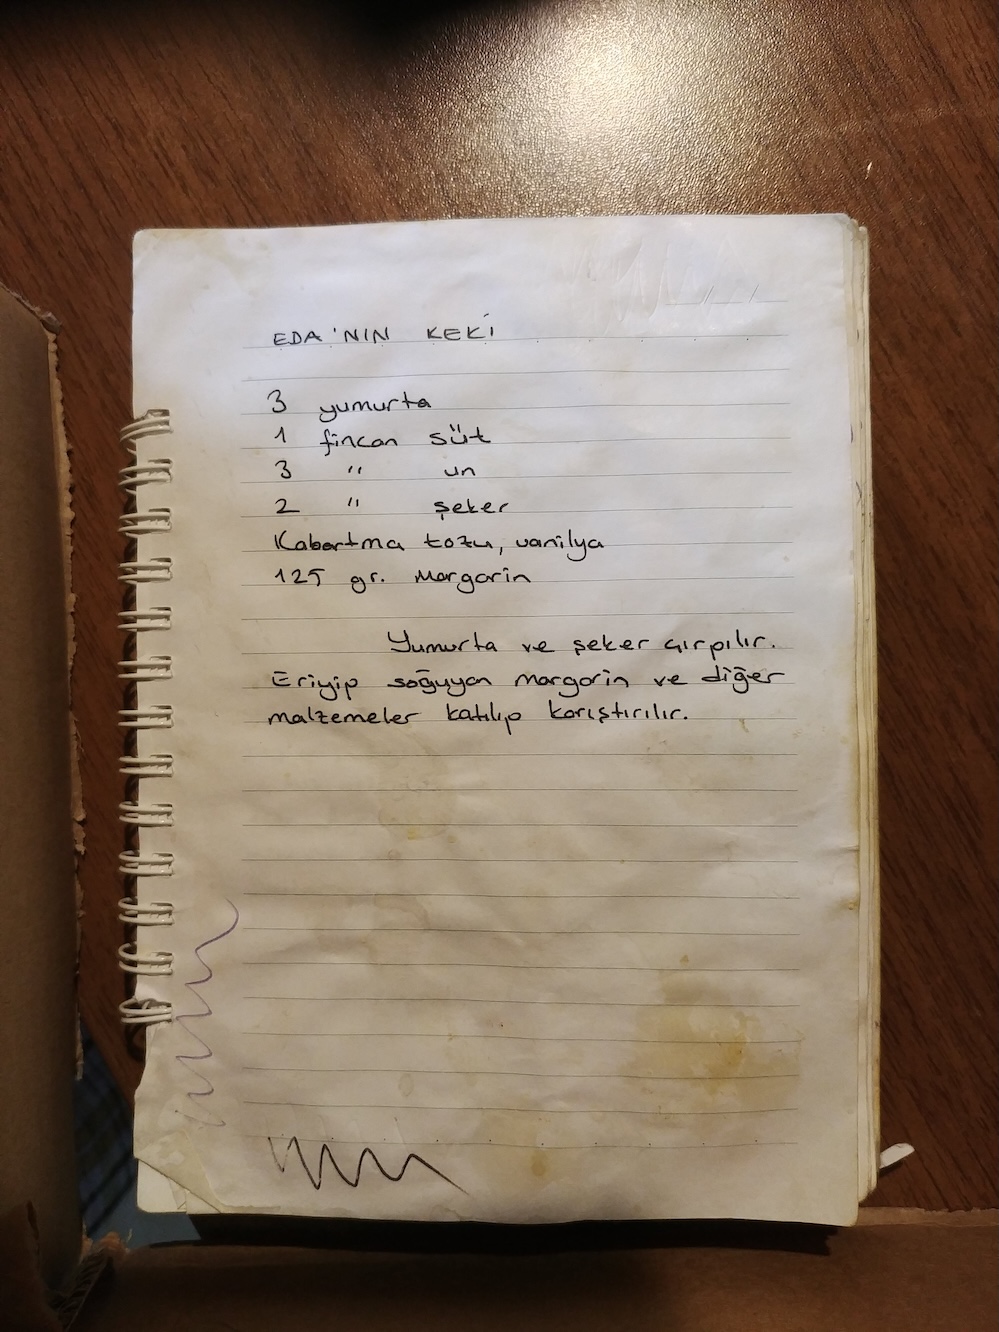 EDA'NIN KEKİ
3 yumurta
1 fincan süt
3 " un
2 " şeker
Kabartma tozu, vanilya
125 gr. Margarin
Yumurta ve şeker çırpılır.
Eriyip soğuyan margarin ve diğer
malzemeler katılıp karıştırılır.